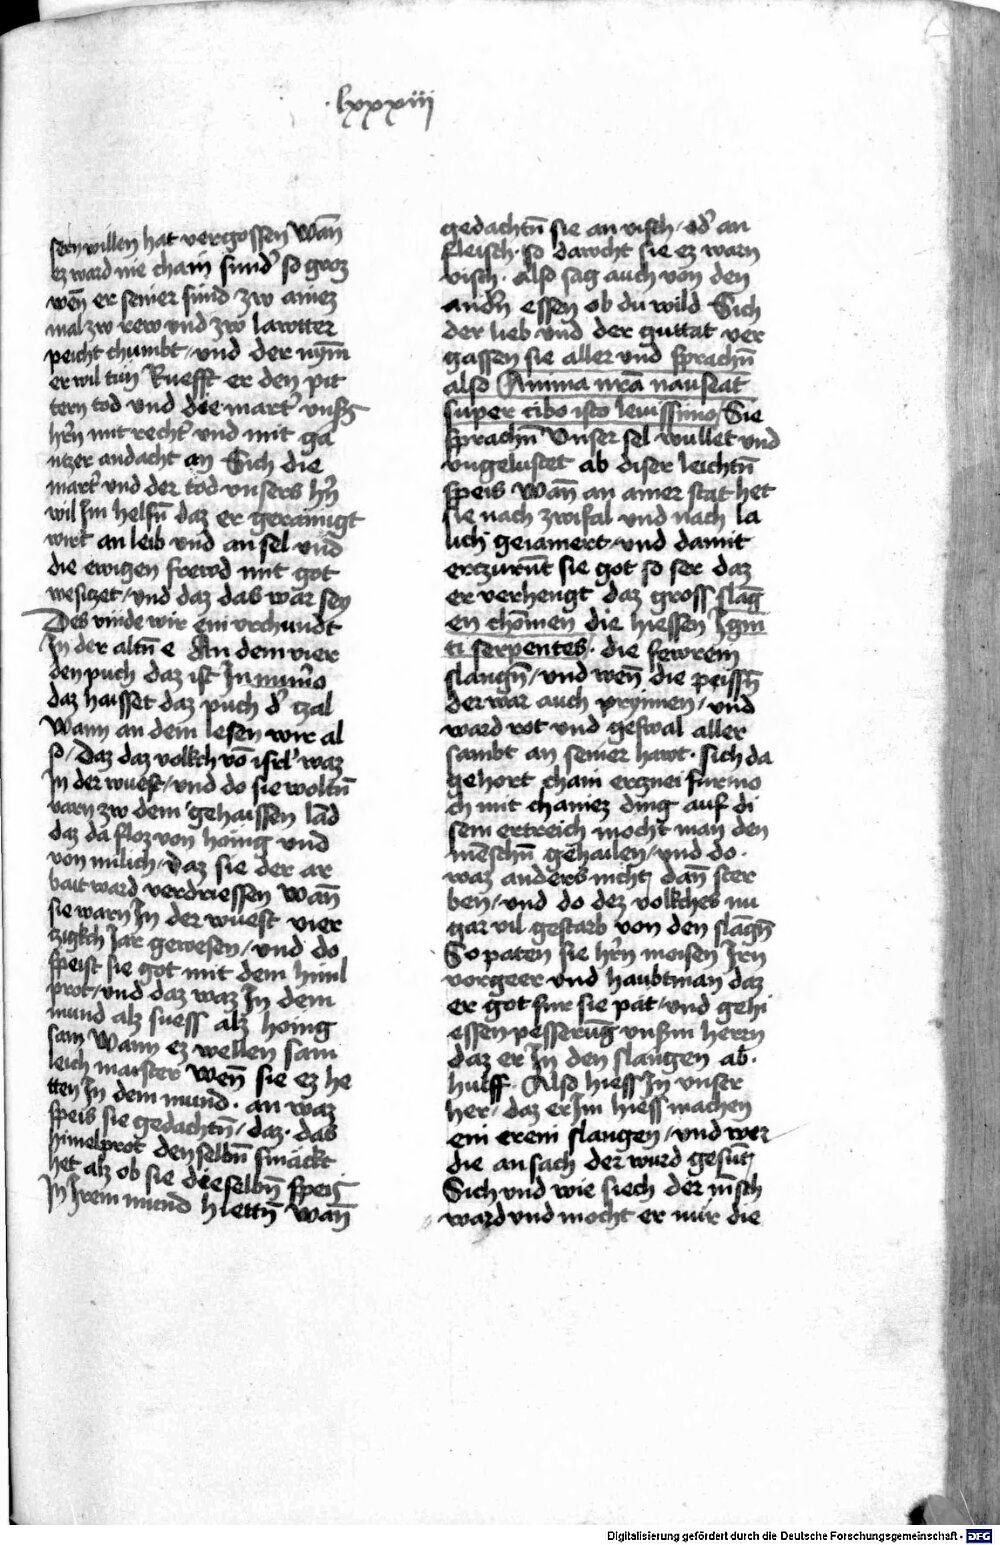 .lxxxiii
sern willen hat vergossen Wan̄
ez ward nie chain sund' so groz
wen̄ er seiner sund zw ainez
mal zw rew vnd zw lawtter
peicht chumbt / vnd der nym̄
er wil tun Ruefft er den pit
tern tod vnd die mart' vnsz̄
hr̄n mit recht' vnd mit ga
ntzer andacht an Sich die
mart' vnd der tod vnsers hr̄n
wil Im helfn̄ daz er gerainigt
wirt an leib vnd an sel vnd
die ewigen frewd mit got
wesiczet / vnd daz das war sey
Des vinde wir ein vrchundt
In der altn̄ e An dem vier
den puch daz ist In num̄o
daz haisset daz puch d' tzal
Wann an dem lesen wir al
so / Daz daz volkch vō isrl' waz
In der wuest / vnd do sie woltn̄
varn zw dem gehaissen lād
daz da floz von honig vnd
von milich / daz sie der ar
bait ward verdriessen Wan̄
sie warn In der wuest vier
zigkch Jar gewesen / vnd do
speist sie got mit dem himl
prot / vnd daz waz In dem
mund alz suess alz honig
sam Wann ez wellen sam
leich maister Wen̄ sie ez he
tten In dem mund . an waz
speis sie gedachtn̄ / daz . das
himelprot denselbn̄ smackt
het alz ob sie dieselbn̄ speiz
In Irem mund hiettn̄ Wan̄
gedachtn̄ sie an visch / od' an
fleisch . so dawcht sie ez warn
visch . also sag auch von den
and'n essen ob du wild Sich
der lieb vnd der guttat ver
gassen sie aller vnd sprachn̄
also Anima nr̄a nauseat
super cibo isto leuissimo / Sie
sprachn̄ Vnser sel wullet vnd
vngelustet ab diser leichtn̄
speis Wan̄ an ainer stat het
sie nach zwifal vnd nach la
lich geiamert / vnd damit
erczurn̄t sie got so ser daz
er verhengt daz gross slāg
en chōmen die hiessen Igni
ti serpentes . die fewrein
slangn̄ / vnd wen̄ die peissn̄
der war auch prynnen / vnd
ward rot vnd geswal aller
sambt an seiner hawt . sich da
gehort cham ercznei fur no
ch mit chainez ding auf di
sem ertreich mocht man den
mēschn̄ gehailen / vnd do .
waz anders nicht dan̄ ster
ben / vnd do dez volkches nu
gar vil gestarb von den slāgn̄
So paten sie hr̄n moisen Irn
vorgeer vnd haubtman daz
er got fur sie pat / vnd gehi
essen pesserūg vnsz̄m herrn
daz er In den slangen ab .
hulff . Also hiess In vnser
her / daz er Im hiess machen
ein erein slangen / vnd wer
die ansach der wurd gesūt
Sich vnd wie siech der mēsch
ward vnd mocht er nur die
Digitalisierung gefördert durch die Deutsche Forschungsgemeinschaft - DFG